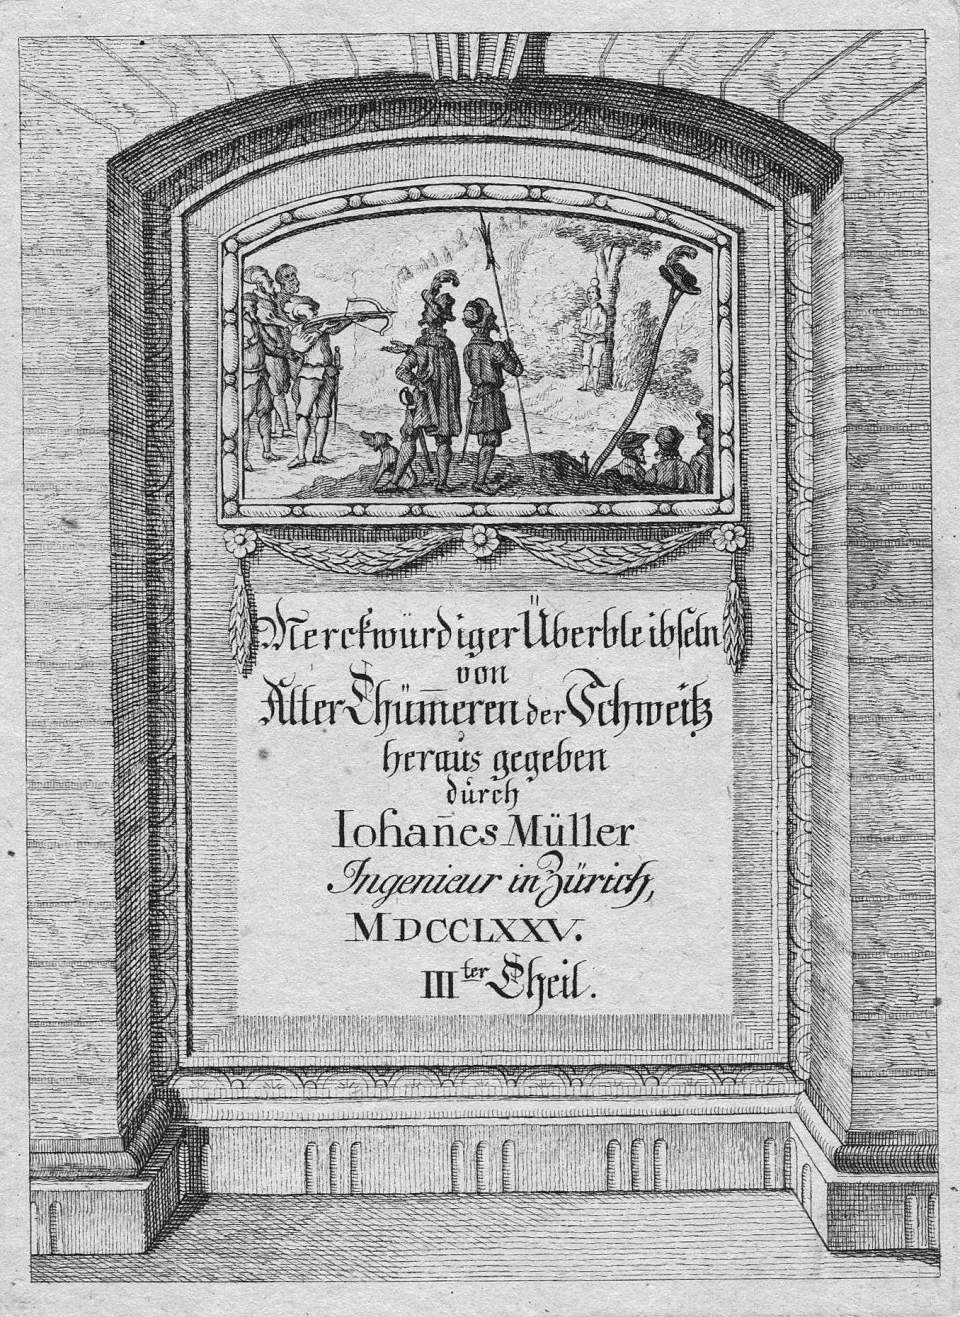 Merckwürdiger Überbleibseln
von
Alter Thüm̅eren der Schweitz
heraus gegeben
durch
Iohan̅es Müller
Ingenieur in Zürich,
MDCCLXXV.
IIIter Theil.